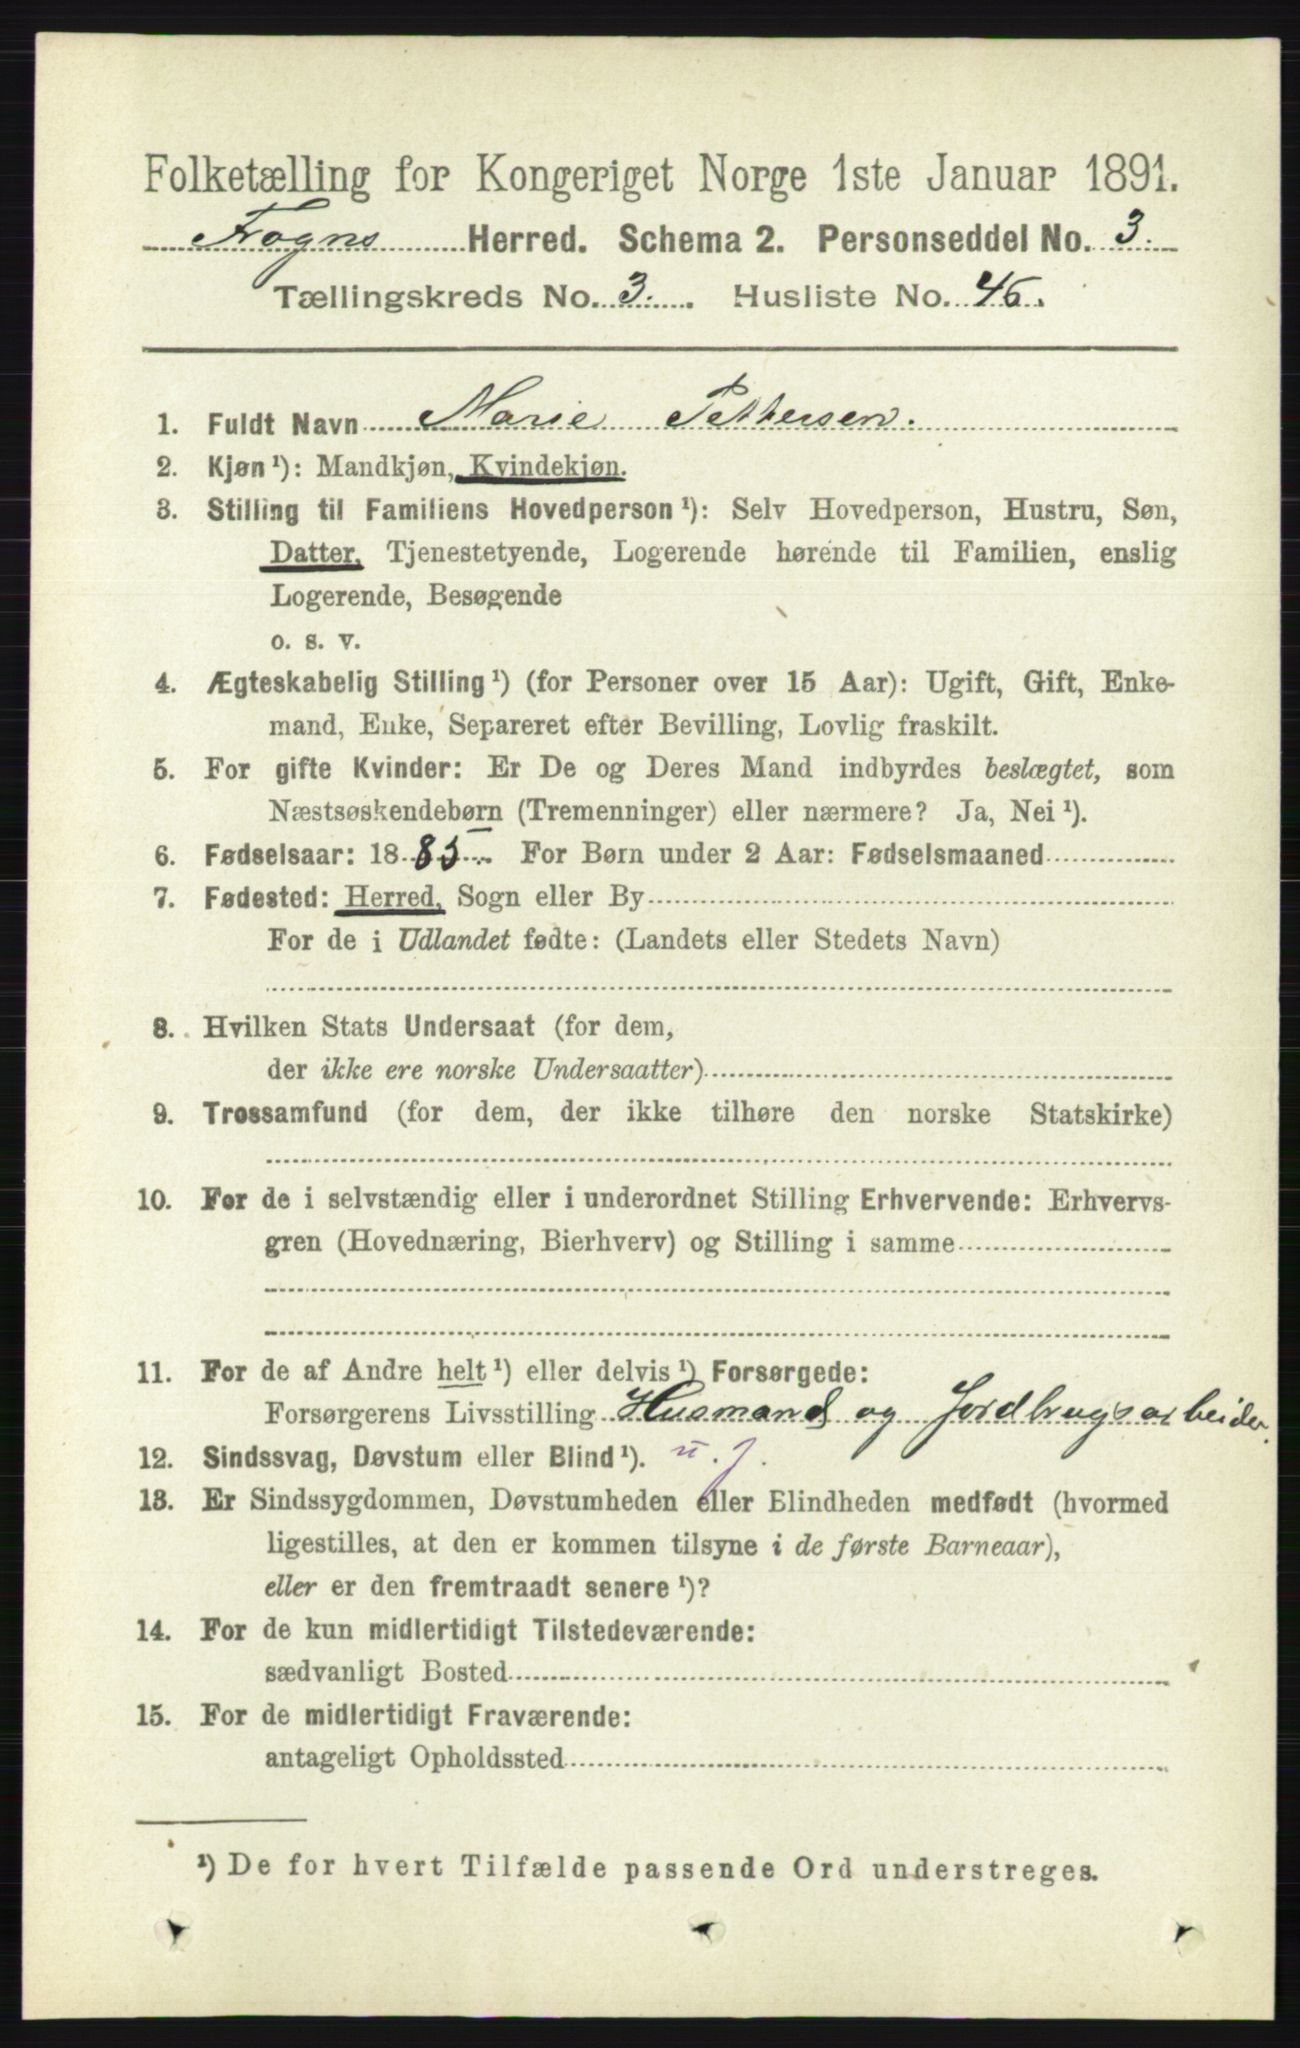 Folketælling for Kongeriget Norge 1ste Januar 1891.
Frogns Herred. Schema 2. Personseddel No. 3.
Tællingskreds No. 3. Husliste No. 45.
1. Fuldt Navn Marie Pettersen.
2. Kjøn¹): Mandkjøn, Kvindekjøn.
3. Stilling til Familiens Hovedperson¹): Selv Hovedperson, Hustru, Søn,
Datter, Tjenestetyende, Logerende hørende til Familien, enslig
Logerende, Besøgende
o. s. v.
4. Ægteskabelig Stilling¹) (for Personer over 15 Aar): Ugift, Gift, Enke-
mand, Enke, Separeret efter Bevilling, Lovlig fraskilt.
5. For gifte Kvinder: Er De og Deres Mand indbyrdes beslægtet, som
Næstsøskendebørn (Tremenninger) eller nærmere? Ja, Nei¹).
6. Fødselsaar: 1885. For Børn under 2 Aar: Fødselsmaaned
7. Fødested: Herred, Sogn eller By
For de i Udlandet fødte: (Landets eller Stedets Navn)
8. Hvilken Stats Undersaat (for dem,
der ikke ere norske Undersaatter)
9. Trossamfund (for dem, der ikke tilhøre den norske Statskirke)
10. For de i selvstændig eller i underordnet Stilling Erhvervende: Erhvervs-
gren (Hovednæring, Bierhverv) og Stilling i samme
11. For de af Andre helt¹) eller delvis¹) Forsørgede:
Forsørgerens Livsstilling Husmand og Jordbrugsarbeider.
12. Sindssvag, Døvstum eller Blind¹). u. j.
13. Er Sindssygdommen, Døvstumheden eller Blindheden medfødt (hvormed
ligestilles, at den er kommen tilsyne i de første Barneaar),
eller er den fremtraadt senere¹)?
14. For de kun midlertidigt Tilstedeværende:
sædvanligt Bosted
15. For de midlertidigt Fraværende:
antageligt Opholdssted
¹) De for hvert Tilfælde passende Ord understreges.